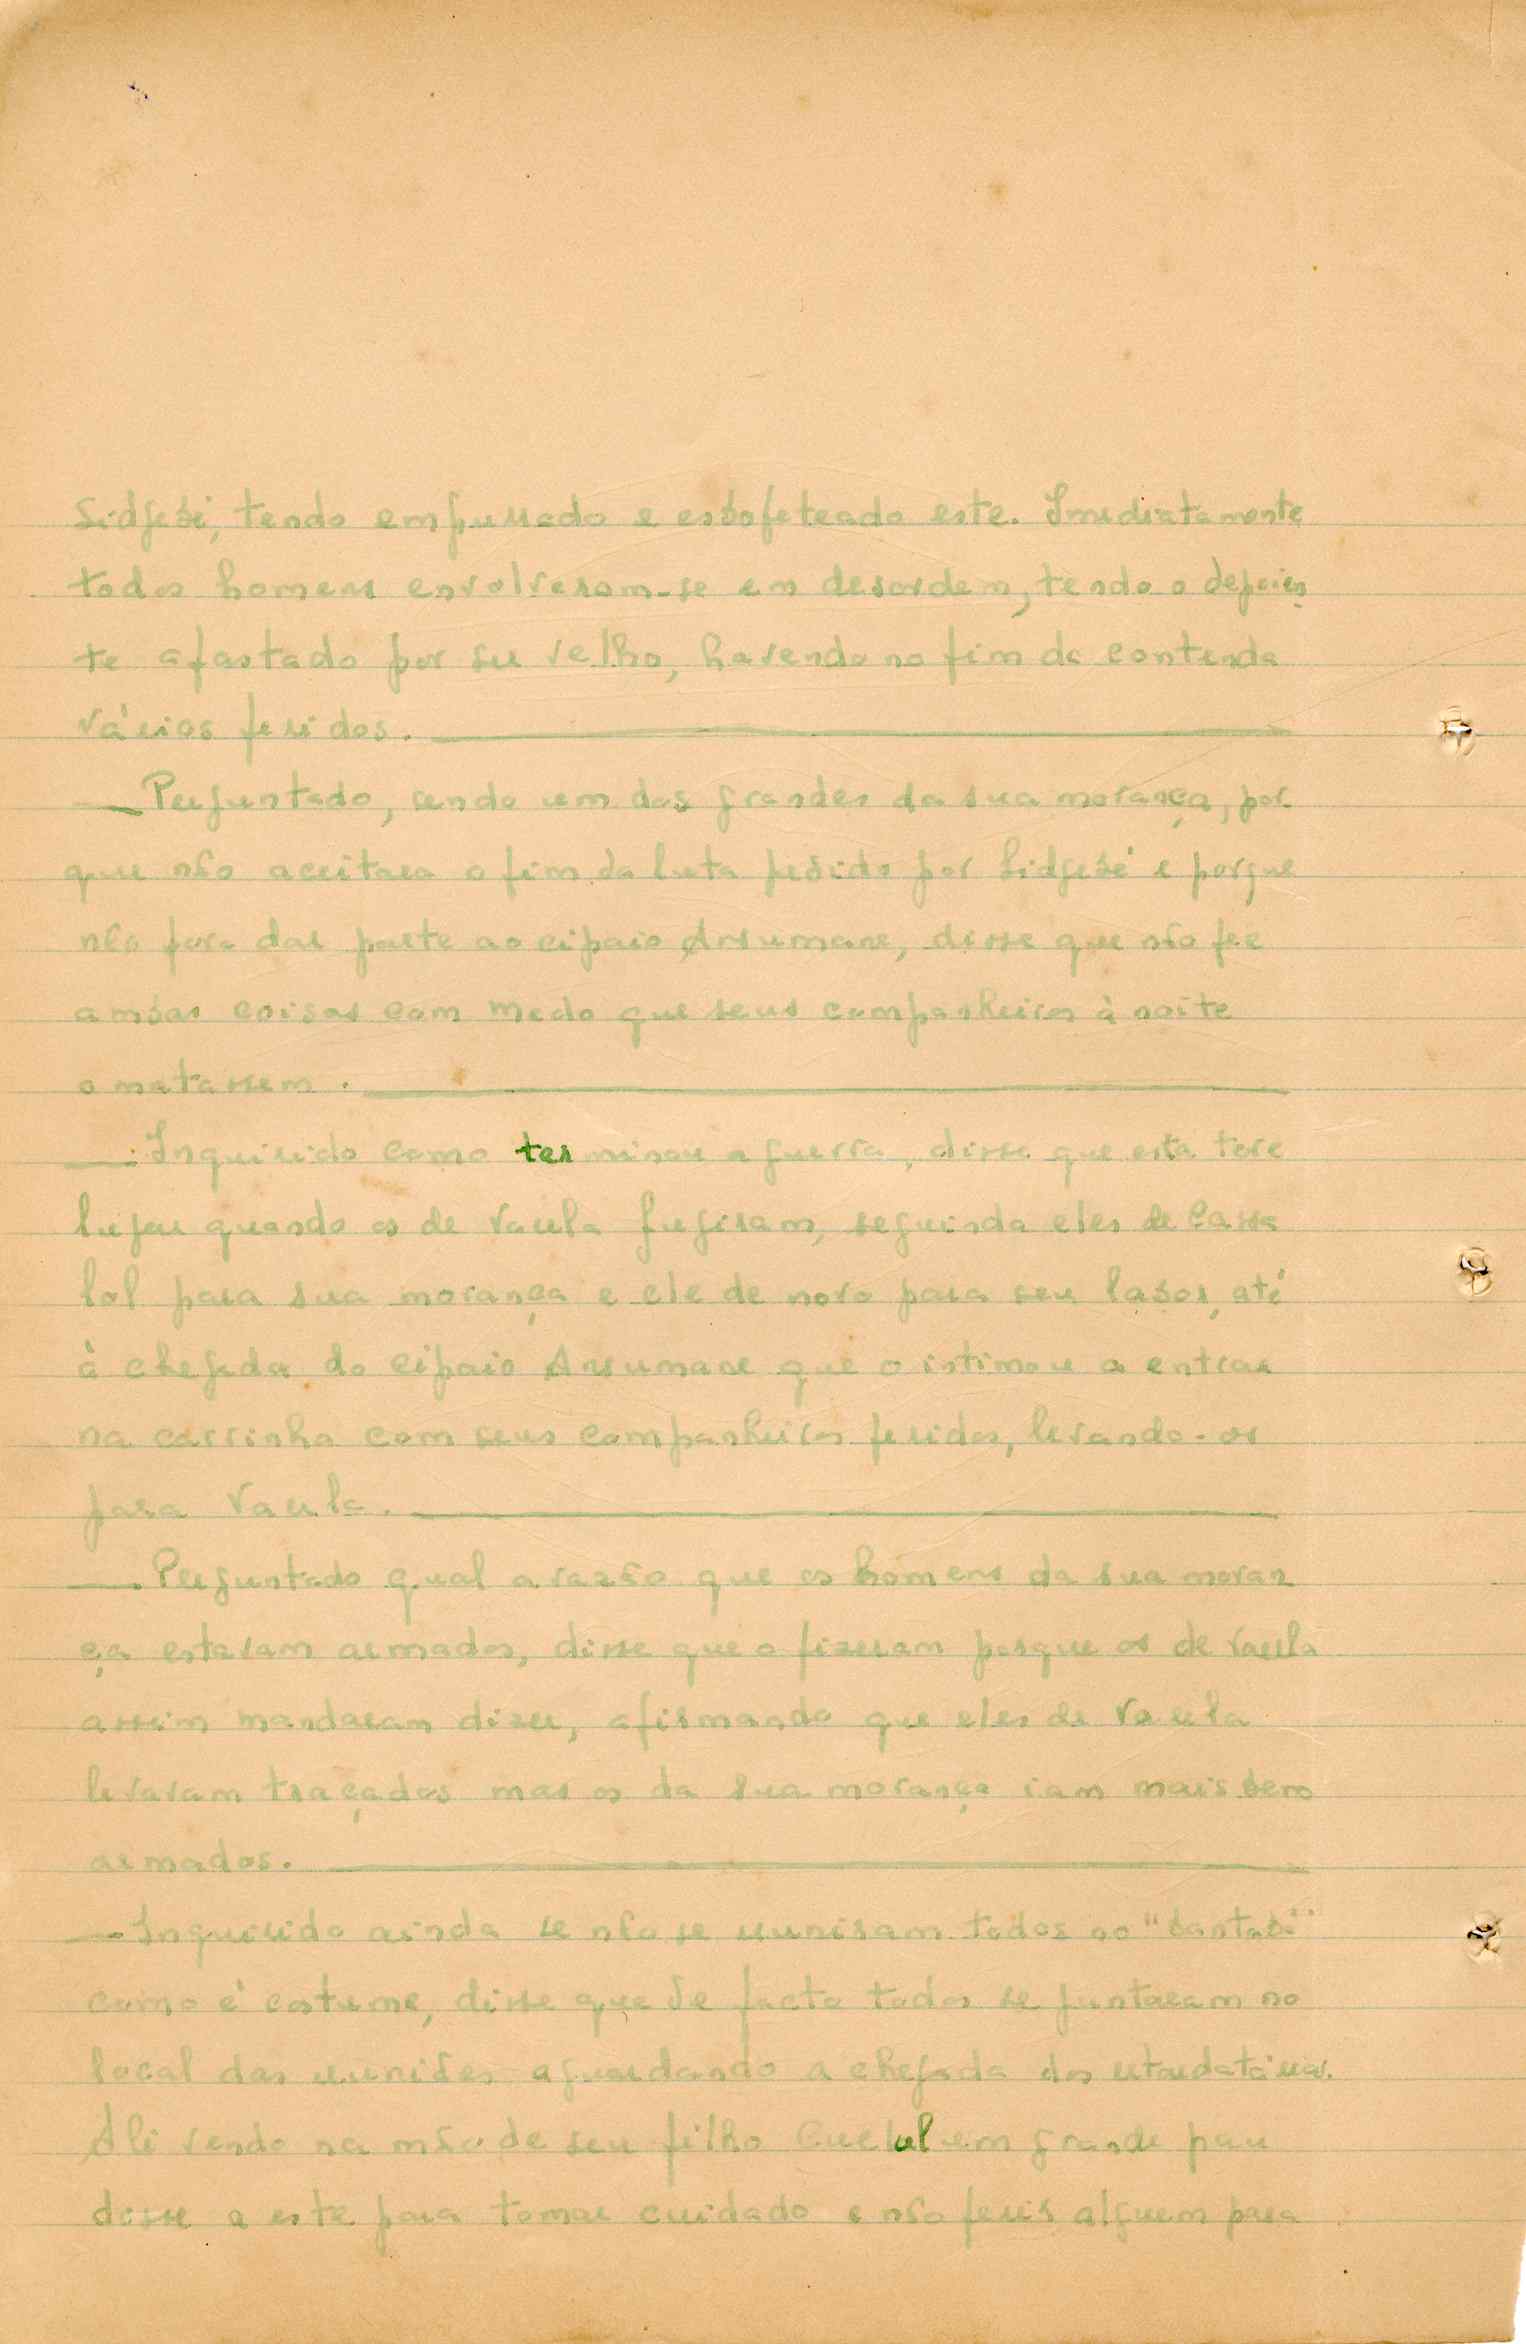 Sidjebé, tendo empurrado e esbofeteado este. Imediatamente
todos homens envolveram-se em desordem, tendo o depoien
te afastado por ser velho, havendo no fim da contenda
vários feridos.
— Perguntado, sendo um dos grandes da sua morança, por
que não aceitara o fim da luta pedido por Sidjebé e porque
não fora dar parte ao cipaio Ansumane, disse que não fez
ambas coisas com medo que seus companheiros à noite
o matassem.
— Inquirido como terminou a guerra, disse que esta teve
lugar quando os de Vaula fugiram, seguindo eles de Cassa
lol para sua morança e ele de novo para seu labor, até
à chegada do cipaio Ansumane que o intimou a entrar
na carrinha com seus companheiros feridos, levando-os
para Varela.
— Perguntado qual a razão que os homens da sua moran
ça estavam armados, disse que o fizeram porque os de Varela
assim mandaram dizer, afirmando que eles de Varela
levavam traçados mas os da sua morança iam mais bem
armados.
— Inquirido ainda se não se reuniram todos no "bantabá"
como é costume, disse que de facto todos se juntaram no
local das reuniões aguardando a chegada dos retardatários.
Ali vendo na mão de seu filho um grande pau
disse a este para tomar cuidado e não ferir alguem para